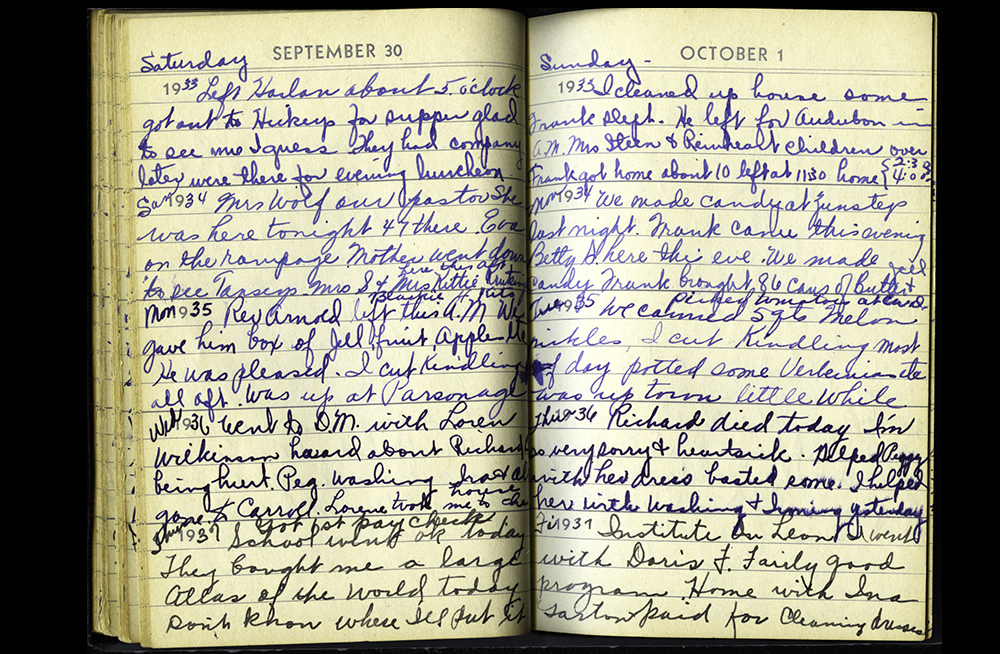 Saturday
SEPTEMBER 30
1933 Left Harlan about 5. o'clock
got out to Hickeys for supper glad
to see me I guess They had company
later were there for evening luncheon.
Sun 1934 Mrs Wolf our pastor She
was here tonight 47 there. Eva
on the rampage Mother went down
to see Tanseys. Mrs S & Mrs Kittie
here this aft
Mon 1935 Rev Arnold left this A.M We
gave him box of Jell fruit, Apples etc
He was pleased. I cut Kindling
all aft. Was up at Parsonage
Wed 1936 Went to D.M. with Loren
Wilkinson heard about Richard
being hurt. Peg. washing Ina &
gone to Carroll. Lorene took me to
house
Got 1st pay check
Thur 1937 School went ok today
They bought me a large
Atlas of the World today
Don't know where I'll put it
Sunday -
OCTOBER 1
1933 I cleaned up house some
Frank slept. He left for Audubon in
A.M. Mrs Steen & Reinheart children over
Frank got home about 10 left at 11:30 home
Mon 1934 We made candy at Junstep
last night. Frank came this evening
Betty D. here this eve. We made
candy Frank brought 86 cans of Butter &
Jell
Tues 1935 We canned 5 qts Melon
pickles, I cut Kindling most
of day potted some Verbenias etc
was up town little while
Thur 1936 Richard died today I'm
so very sorry & heartsick. Helped Peggy
with her dress basted some. I helped
here with Washing & Ironing yesterday
Fri 1937 Institute on Leon I went
with Doris F. Fairly good
program. Home with Ina
Saxton paid for Cleaning dresses